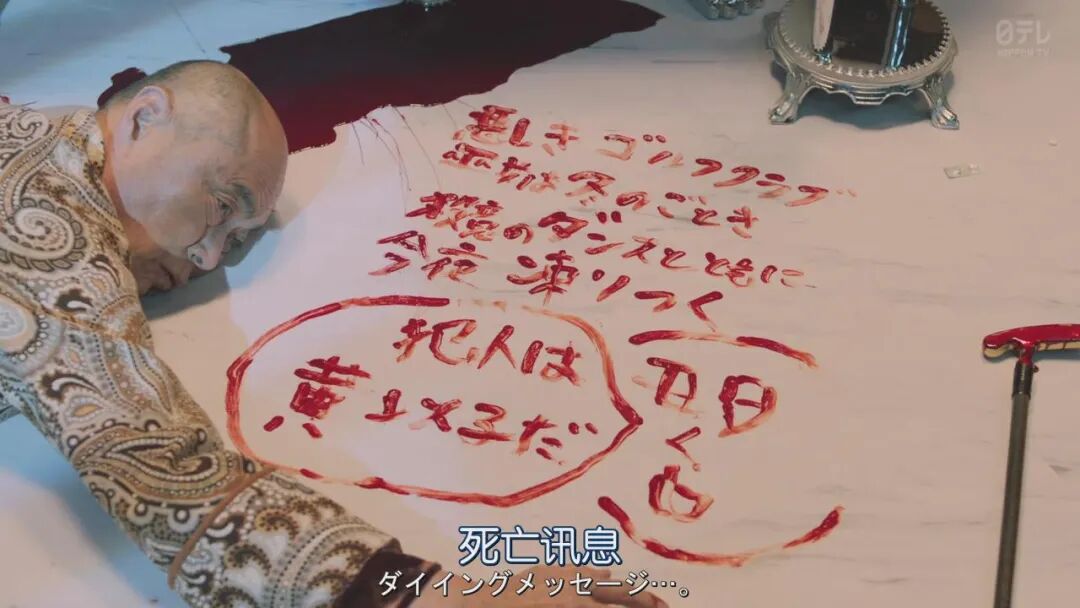 日テレ
NIPPON TV
悪しきゴルフクラブ
示すは冬のごとき
殺意のダンスとともに
今夜 凍りつく
犯人は
黄上×子だ
死亡讯息
ダイイングメッセージ…。